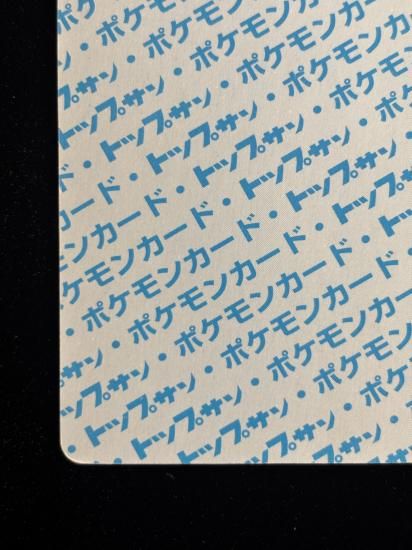 プサン・ポケモン
トップサン・ポケモンカ
・トップサン・ポケモンカ
ド・トップサン・ポケモンカ
カード・トップサン・ポケモ
ンカード・トップサン・ポケ
ケモンカード・トップサン・
・ポケモンカード・トップサン
・ポケモンカード・トップ
ン・ポケモンカード・
サン・ポケモンカード
トップサン・ポケモンカ
・トップサン・ポケモン
・トップサン・ポケ
トップサン・
トップ